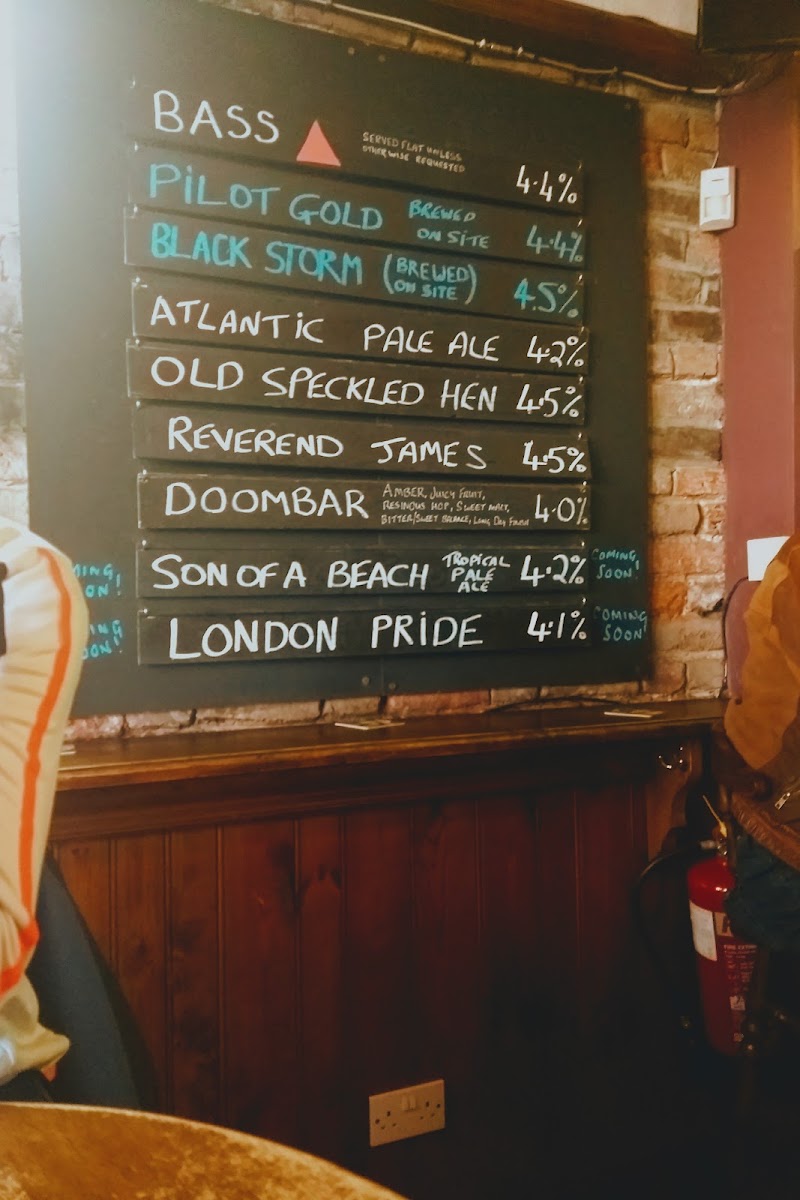 BASS SERVED FLAT UNLESS OTHERWISE REQUESTED 4.4%
PILOT GOLD BREWED ON SITE 4.4%
BLACK STORM (BREWED ON SITE) 4.5%
ATLANTIC PALE ALE 4.2%
OLD SPECKLED HEN 4.5%
REVEREND JAMES 4.5%
DOOMBAR AMBER, JUICY FRUIT, RESINOUS HOP, SWEET MALT, BITTER/SWEET BALANCE, LONG DRY FINISH 4.0%
SON OF A BEACH TROPICAL PALE ALE 4.2% COMING SOON!
LONDON PRIDE 4.1% COMING SOON!
FIRE